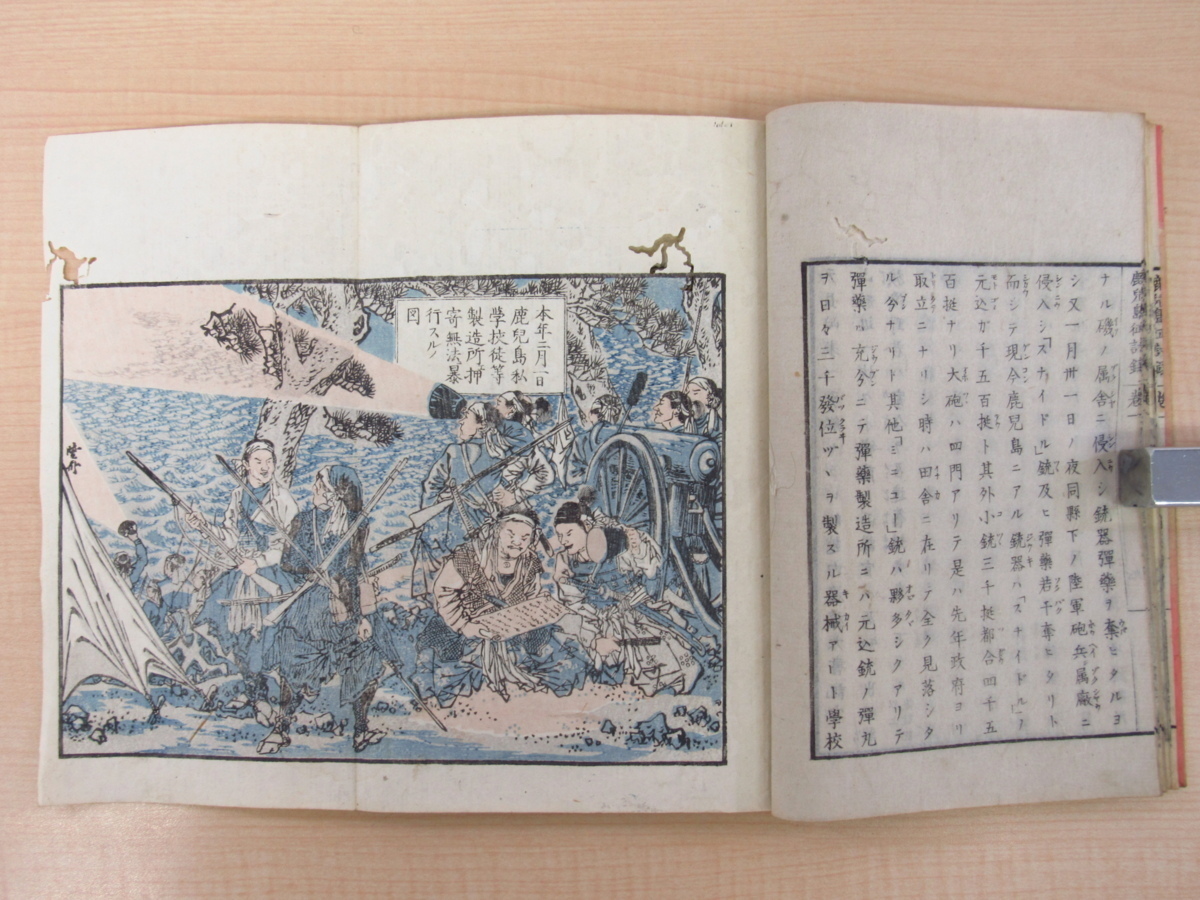 ナル磯ノ属舎ニ侵入シ銃器彈藥ヲ奪ヒタルヨ
シ又一月卅一日ノ夜同縣下ノ陸軍砲兵属廠ニ
侵入シ「スナイドル」銃及ヒ彈藥若干奪ヒタリト
而シテ現今鹿児島ニアル銃器ハ「スナイドル」ノ
元込ガ千五百挺ト其外小銃三千挺都合四千五
百挺ナリ大砲ハ四門アリテ是ハ先年政府ヨリ
取立ニナリシ時ハ田舎ニ在リテ全ク見落シタ
ル今ナリト其他「ミニユー」銃ハ夥多シクアリテ
彈藥ハ充分ニテ彈藥製造所ニハ元込銃ノ彈丸
ヲ日々三千發位ヅヽヲ製スル器械アリト學校
本年二月一日
鹿兒島私
學校徒等
製造所押
寄無法暴
行スルノ
図